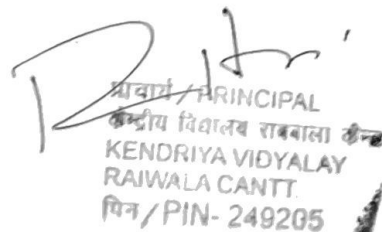 प्राचार्य / PRINCIPAL
केन्द्रीय विद्यालय रायवाला कैन्ट
KENDRIYA VIDYALAY
RAIWALA CANTT.
पिन / PIN- 249205